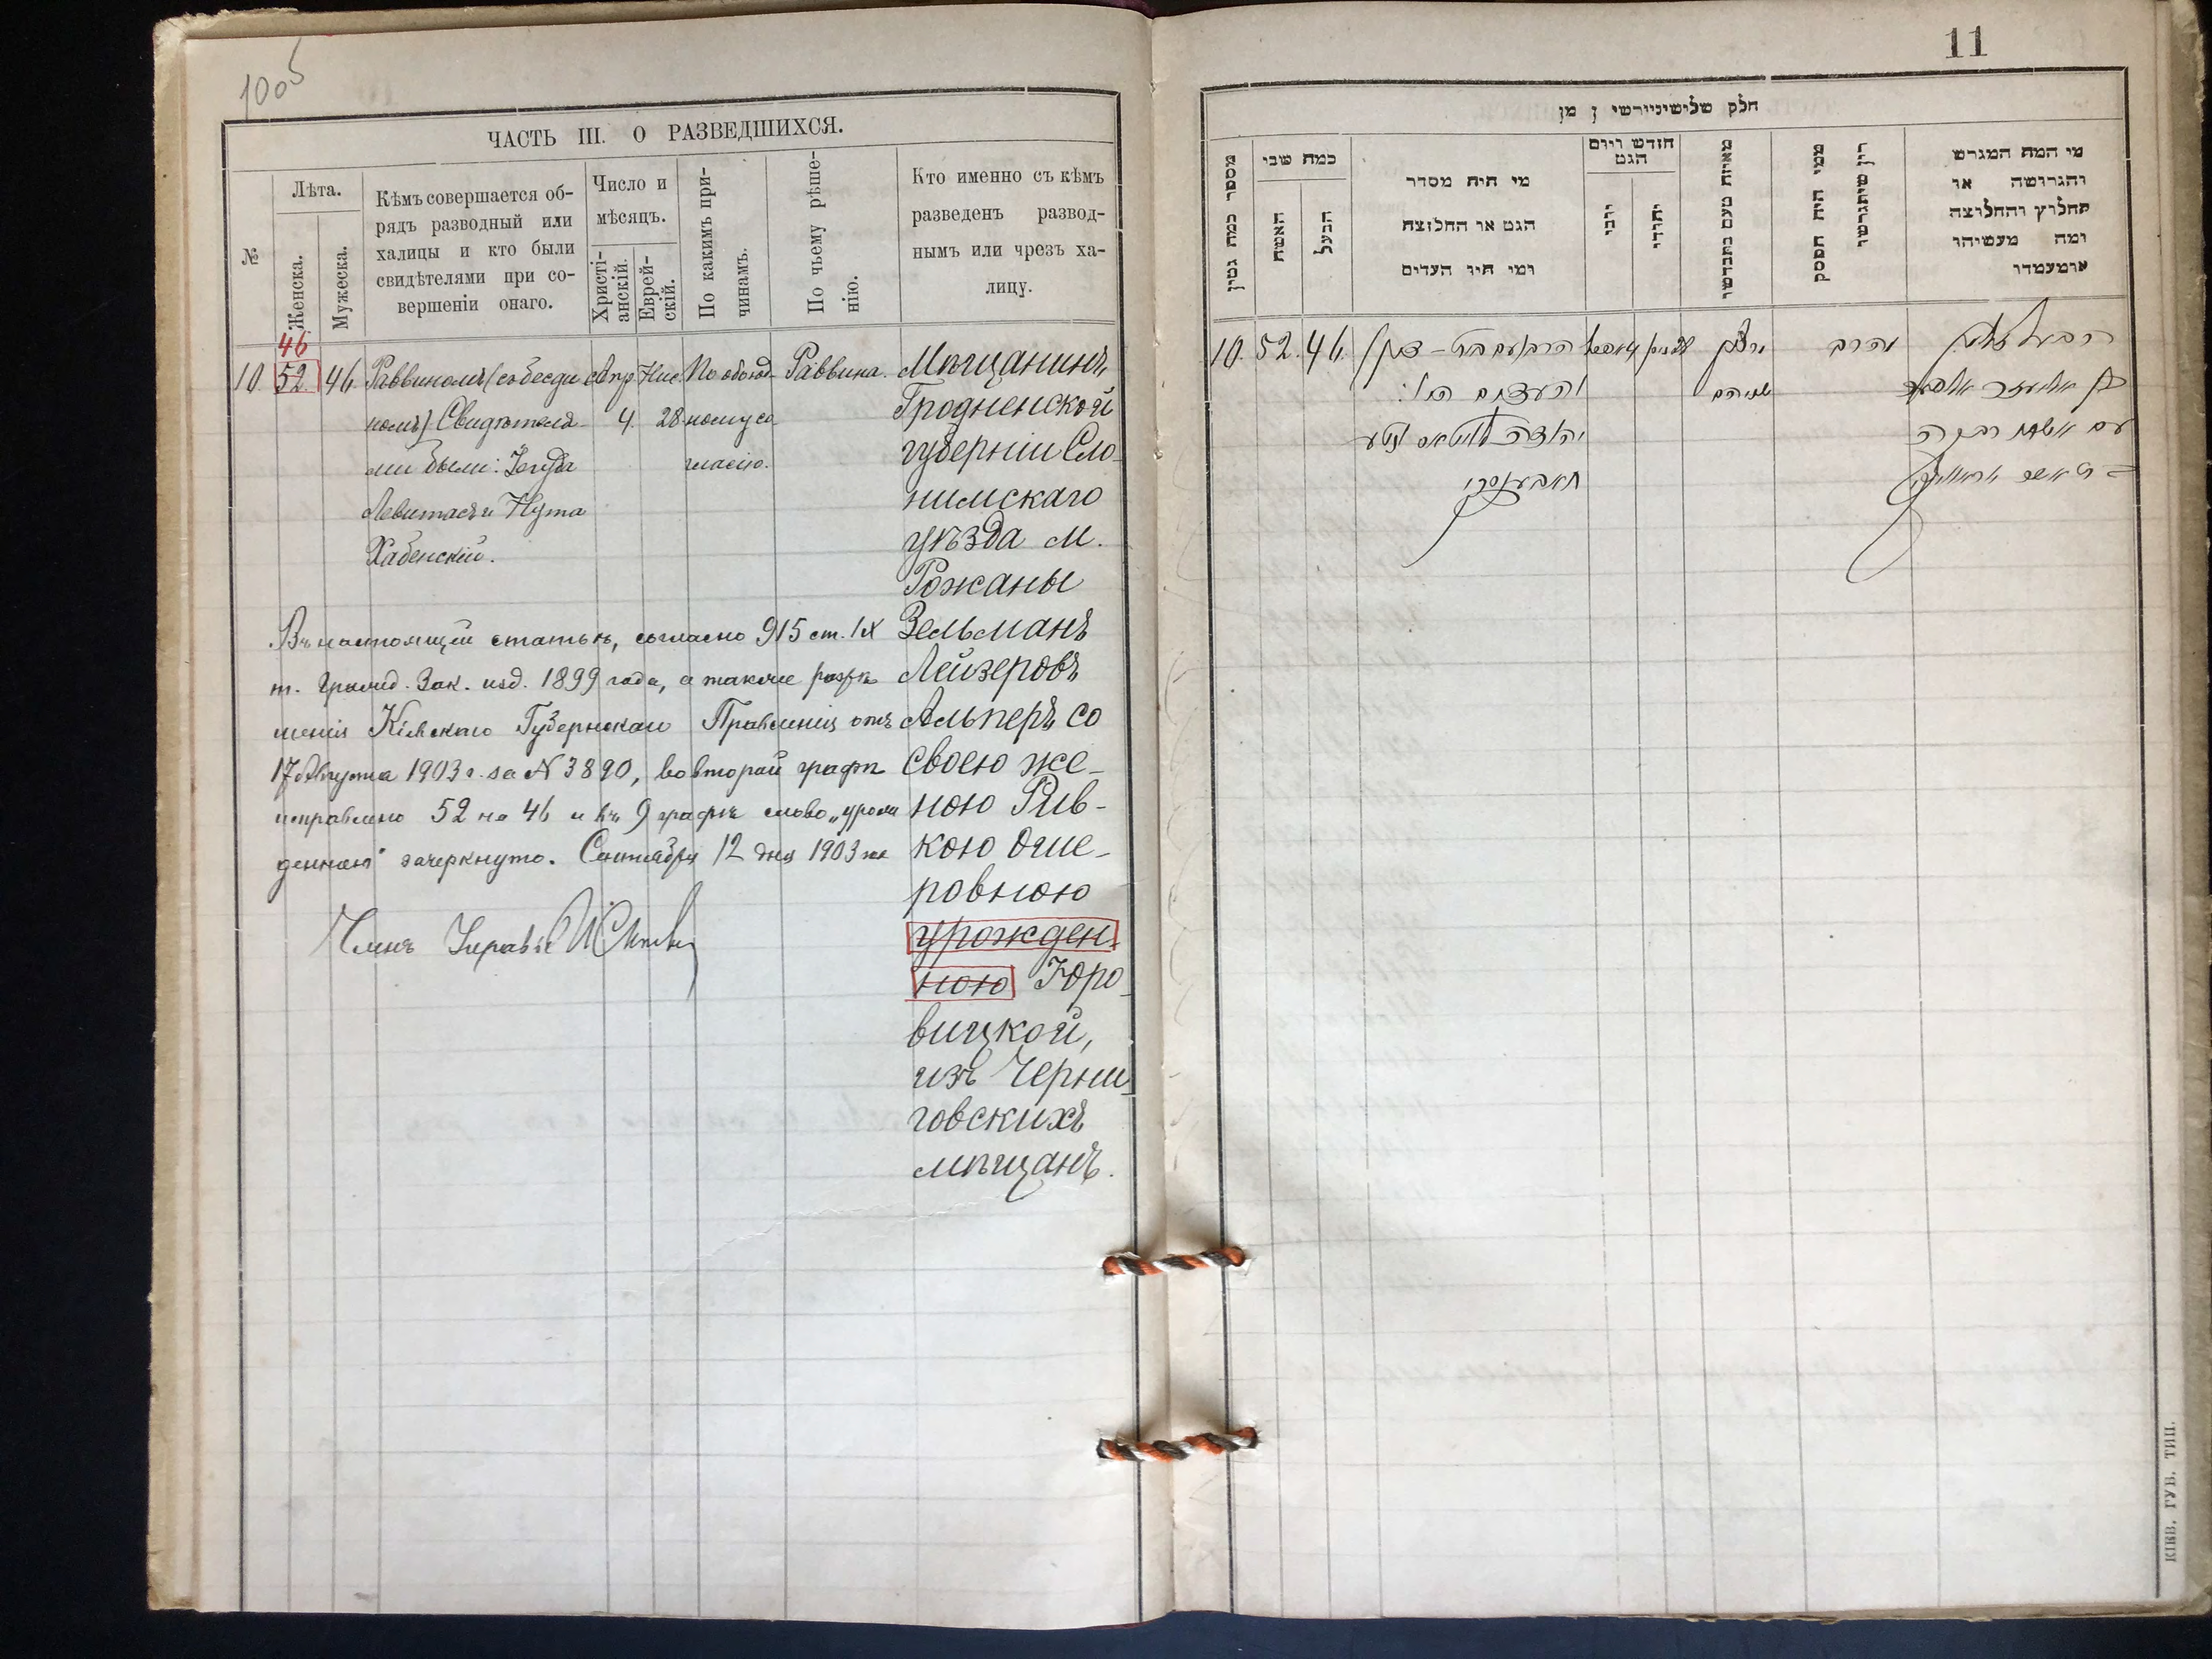 1005
ЧАСТЬ III. О РАЗВЕДШИХСЯ.
№
Лѣта.
Женска.
Мужеска.
Кѣмъ совершается об-
рядъ разводный или
халицы и кто были
свидѣтелями при со-
вершеніи онаго.
Число и
мѣсяцъ.
Христі-
анскій.
Еврей-
скій.
По какимъ при-
чинамъ.
По чьему рѣше-
нію.
Кто именно съ кѣмъ
разведенъ развод-
нымъ или чрезъ ха-
лицу.
46
10. 52. 46.
Раввиномъ
Свидѣтеля-
ми были: Іегуда
Левитасъ и Нута
Хабенскій.
Апр.
4
Нис.
28
По обоюд-
ному со-
гласію.
Раввина.
Мѣщанинъ
Гродненской
губерніи Сло-
нимскаго
уѣзда м.
Рожаны
Зельманъ
Лейзеровъ
Альперъ со
своею же-
ною Рив-
кою Оше-
ровною
урожден-
ною Юро-
вицкой,
изъ Черни-
говскихъ
мѣщанъ.
Въ настоящей статьѣ, согласно 915 ст. IX
т. Гражд. Зак. изд. 1899 года, а также разрѣ-
шенія Кіевскаго Губернскаго Правленія отъ
17 Августа 1903 г. за № 3890, во второй графѣ
исправлено 52 на 46 и въ 9 графѣ слово „урож-
денною" зачеркнуто. Сентября 12 дня 1903 года
Членъ Управы
11
חלק שלישי
מספר כמה גטין
כמה שני
האשה
הבעל
מי היה מסדר
הגט או החלוצה
ומי היו העדים
חודש ויום
הגט
יהודי
מאיזה טעם נתגרשו
ממי היה הפסק
דין שיתגרשו
מי המה המגרש
והגרושה או
החולץ והחלוצה
ומה מעשיהו
ומעמדו
10. 52. 46.
והעדים היו:
יהודה
והרב
עם אשתו רבקה
КІЕВ. ГУБ. ТИП.